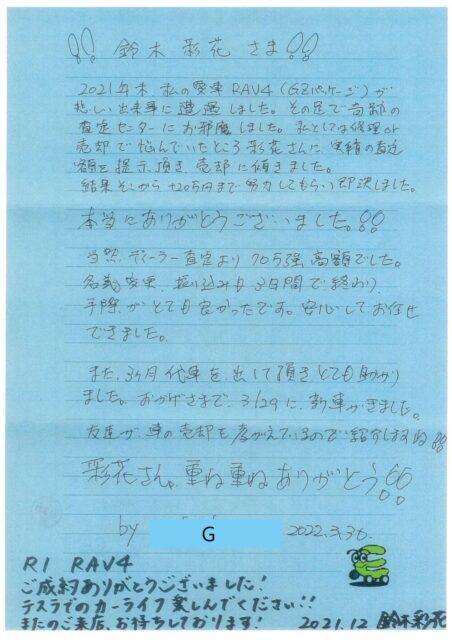 !! 鈴木 彩花 さま !!
2021年末 私の愛車 RAV4 (GZパッケージ)が
悲しい出来事に遭遇しました。その足で奇跡の
査定センターにお邪魔しました。私としては修理or
売却で悩んでいたところ彩花さんに、実績の査定
額を提示頂き、売却に傾きました。
結果そこから+20万円まで努力してもらい即決しました。
本当にありがとうございました。!!
当然、ディーラー査定より70万強高額でした。
名義変更、振り込みも3日間で終わり、
手際がとても良かったです。安心してお任せ
できました。
また、3ヶ月代車を出して頂きとても助かり
ました。おかげさまで、3/29に、新車がきました。
友達が車の売却を考がえているので紹介しますね!!
彩花さん、重ね重ねありがとう!!
by G 2022.3.30.
R1 RAV4
ご成約ありがとうございました!
テスラでのカーライフ楽しんでください!!
またのご来店、お待ちしております! 2021.12 鈴木彩花